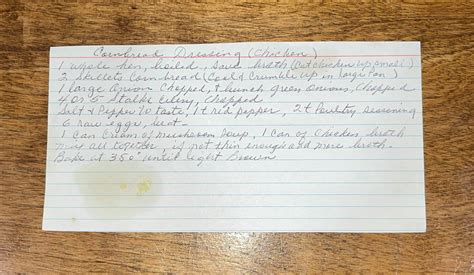 Cornbread Dressing (Chicken)
1 whole hen, boiled, save broth (Cut chicken up small)
2 skillets Cornbread (Cool & Crumble up in large pan)
1 large Onion Chopped, 1 bunch green Onions, Chopped
4 or 5 Stalks Celery, Chopped
Salt & Pepper to taste, 1 t red pepper, 2 t Poultry seasoning
6 raw eggs, beat
1 can Cream of mushroom soup, 1 Can of Chicken broth
mix all together, if not thin enough add more broth.
Bake at 350° until light Brown